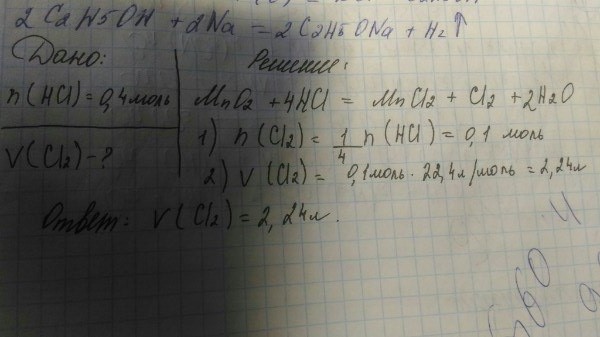 2C2H5OH + 2Na = 2C2H5ONa + H2↑
Дано:
n(HCl) = 0,4моль
V(Cl2) - ?
Решение:
MnO2 + 4HCl = MnCl2 + Cl2 + 2H2O
1) n(Cl2) = 1/4 n(HCl) = 0,1 моль
2) V(Cl2) = 0,1моль · 22,4л/моль = 2,24л
Ответ: V(Cl2) = 2,24л.